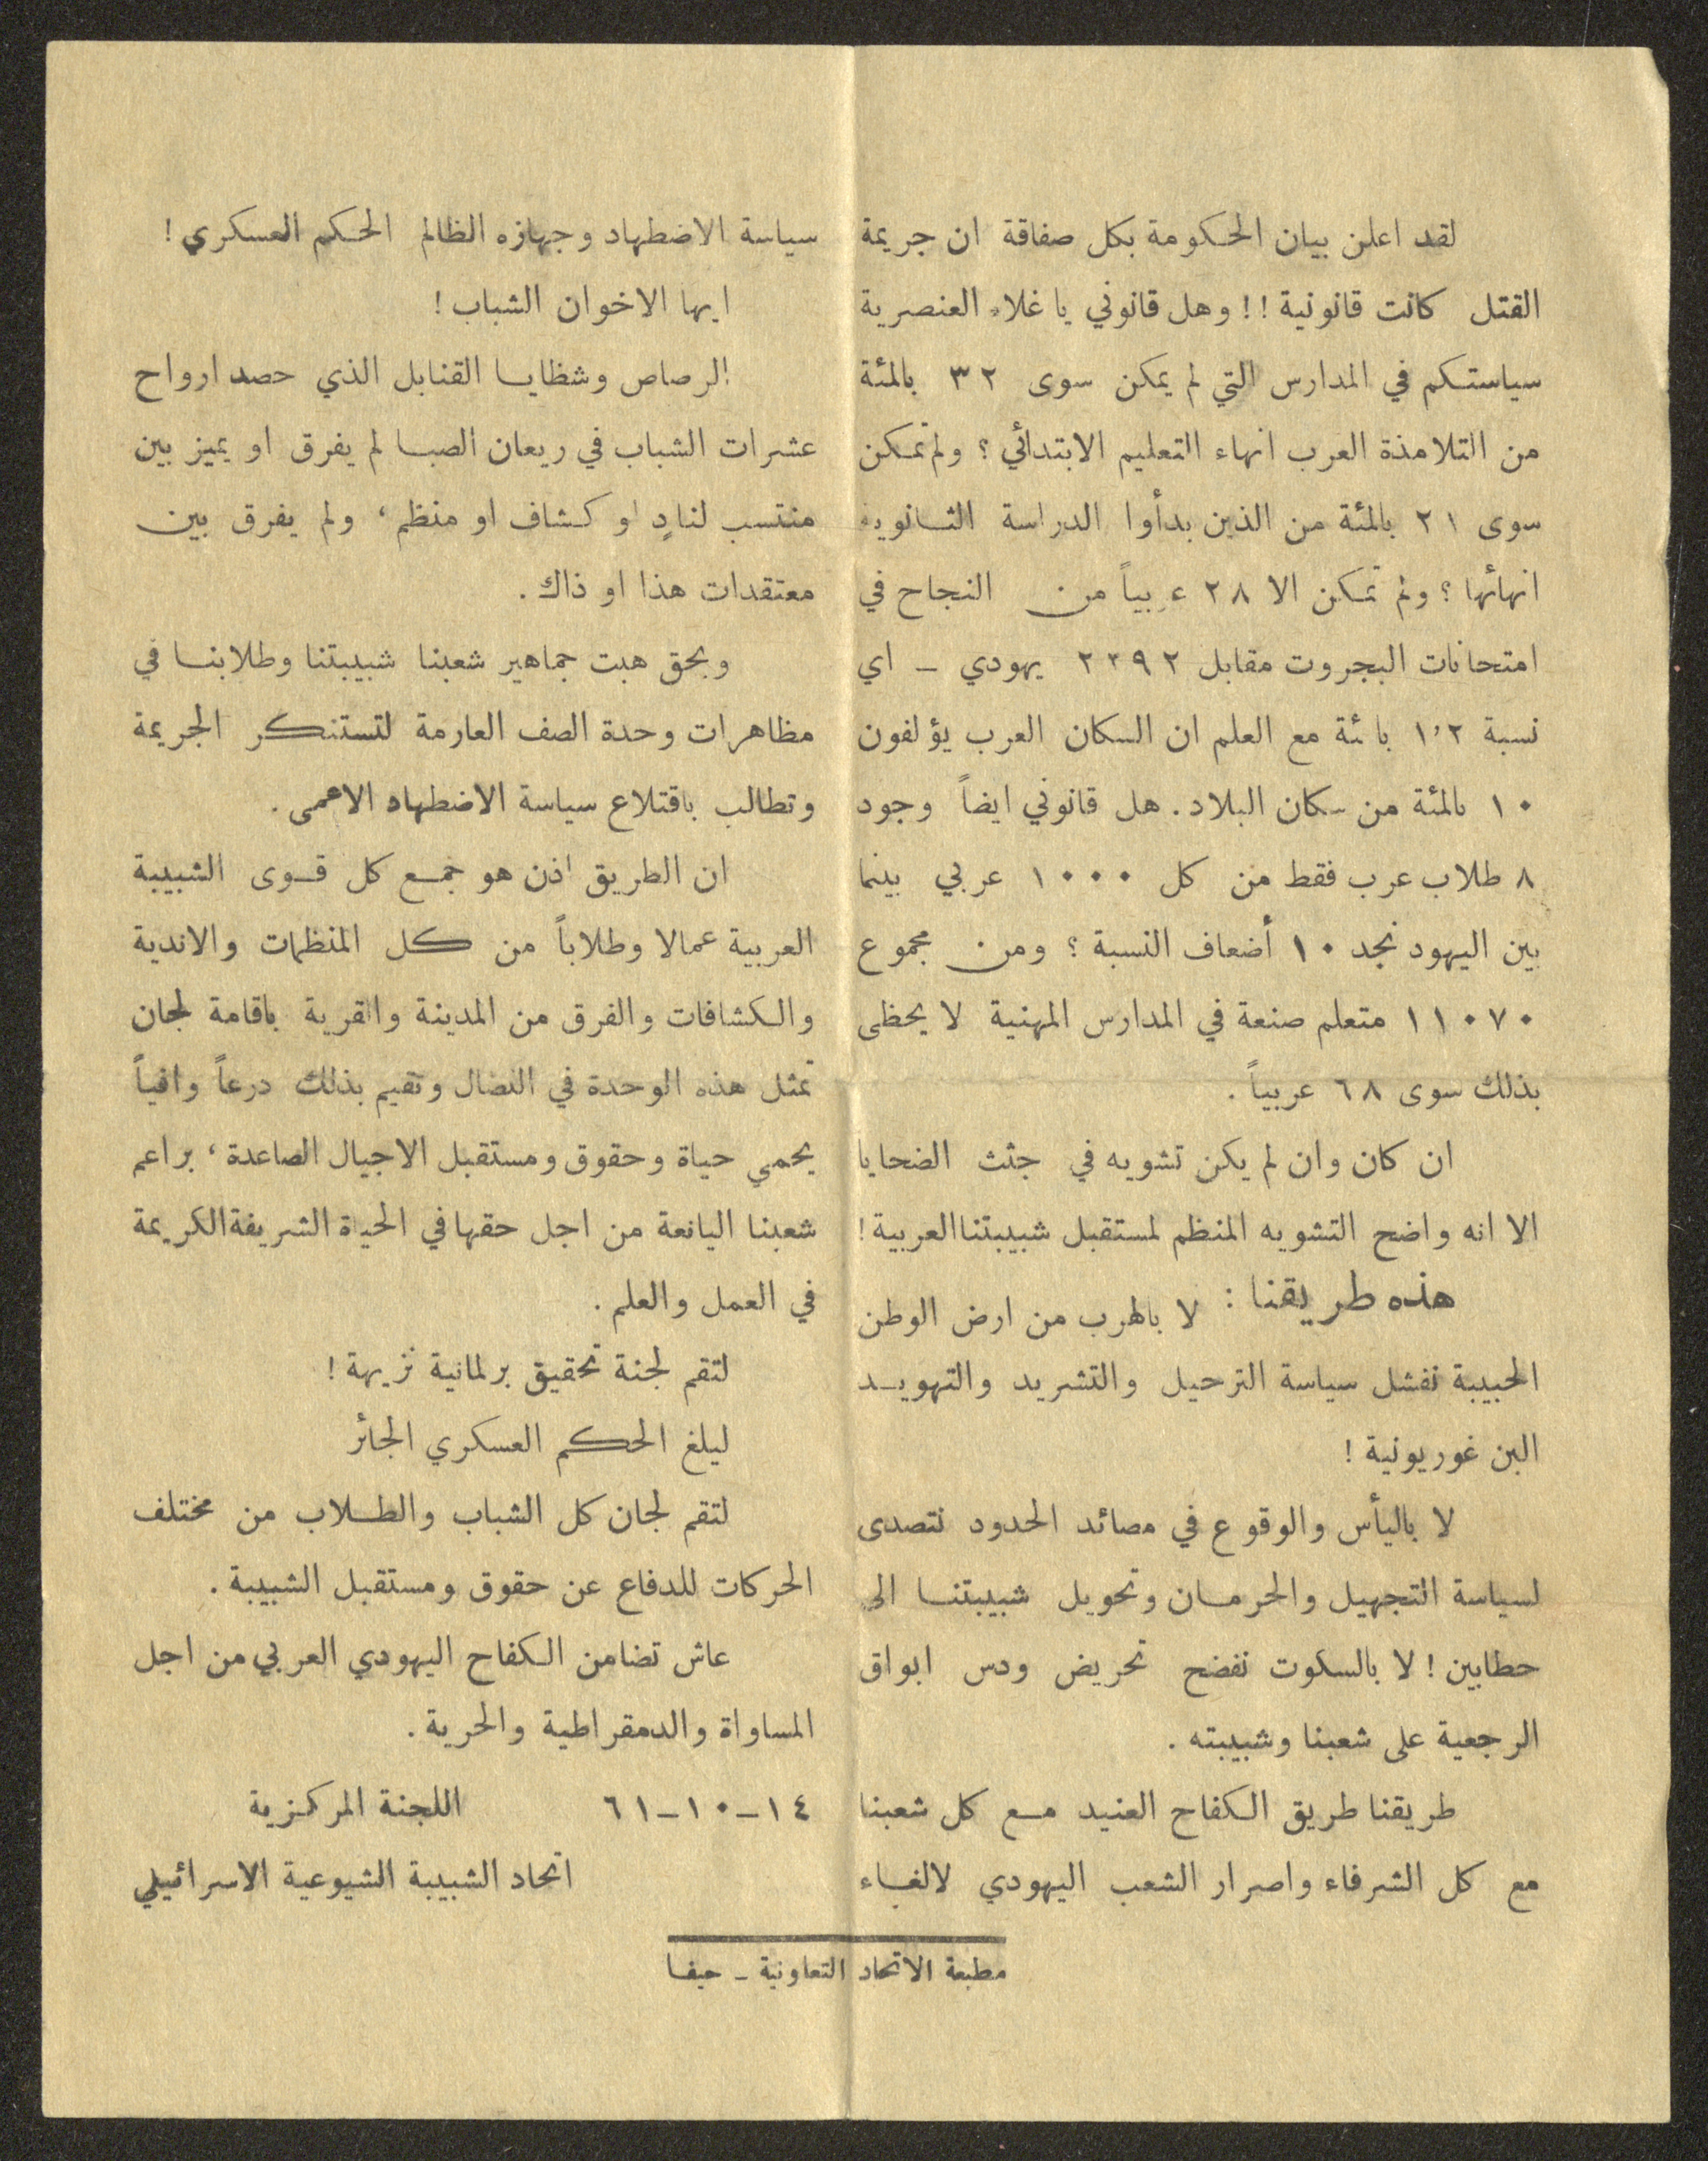 لقد اعلن بيان الحكومة بكل صفاقة ان جريمة
القتل كانت قانونية !! وهل قانوني يا غلاة العنصرية
سياستكم في المدارس التي لم يمكن سوى ٣٢ بالمئة
من التلامذة العرب انهاء التعليم الابتدائي ؟ ولم تمكن
سوى ٢١ بالمئة من الذين بدأوا الدراسة الثانوية
انهائها ؟ ولم تمكن الا ٢٨ عربياً من النجاح في
امتحانات البجروت مقابل ٢٢٩٢ يهودي ـ اي
نسبة ١٬٢ بالمئة مع العلم ان السكان العرب يؤلفون
١٠ بالمئة من سكان البلاد . هل قانوني ايضاً وجود
٨ طلاب عرب فقط من كل ١٠٠٠ عربي بينما
بين اليهود نجد ١٠ أضعاف النسبة ؟ ومن مجموع
١١٠٧٠ متعلم صنعة في المدارس المهنية لا يحظى
بذلك سوى ٦٨ عربياً .
ان كان وان لم يكن تشويه في جثث الضحايا
الا انه واضح التشويه المنظم لمستقبل شبيبتنا العربية !
هذه طريقنا : لا بالهرب من ارض الوطن
الحبيبة نفشل سياسة الترحيل والتشريد والتهويد
البن غوريونية !
لا باليأس والوقوع في مصائد الحدود نتصدى
لسياسة التجهيل والحرمان وتحويل شبيبتنا الى
حطابين ! لا بالسكوت نفضح تحريض ودس ابواق
الرجعية على شعبنا وشبيبته .
طريقنا طريق الكفاح العنيد مع كل شعبنا
مع كل الشرفاء واصرار الشعب اليهودي لالغاء
سياسة الاضطهاد وجهازه الظالم الحكم العسكري !
ايها الاخوان الشباب !
الرصاص وشظايا القنابل الذي حصد ارواح
عشرات الشباب في ريعان الصبا لم يفرق او يميز بين
منتسب لنادٍ او كشاف او منظم ، ولم يفرق بين
معتقدات هذا او ذاك .
وبحق هبت جماهير شعبنا شبيبتنا وطلابنا في
مظاهرات وحدة الصف العارمة لتستنكر الجريمة
وتطالب باقتلاع سياسة الاضطهاد الاعمى .
ان الطريق اذن هو جمع كل قوى الشبيبة
العربية عمالا وطلاباً من كل المنظمات والاندية
والكشافات والفرق من المدينة والقرية باقامة لجان
تمثل هذه الوحدة في النضال وتقيم بذلك درعاً واقياً
يحمي حياة وحقوق ومستقبل الاجيال الصاعدة ، براعم
شعبنا اليانعة من اجل حقها في الحياة الشريفة الكريمة
في العمل والعلم .
لتقم لجنة تحقيق برلمانية نزيهة !
ليلغ الحكم العسكري الجائر
لتقم لجان كل الشباب والطلاب من مختلف
الحركات للدفاع عن حقوق ومستقبل الشبيبة .
عاش تضامن الكفاح اليهودي العربي من اجل
المساواة والدمقراطية والحرية .
١٤ـ١٠ـ٦١ اللجنة المركزية
اتحاد الشبيبة الشيوعية الاسرائيلي
مطبعة الاتحاد التعاونية ـ حيفا